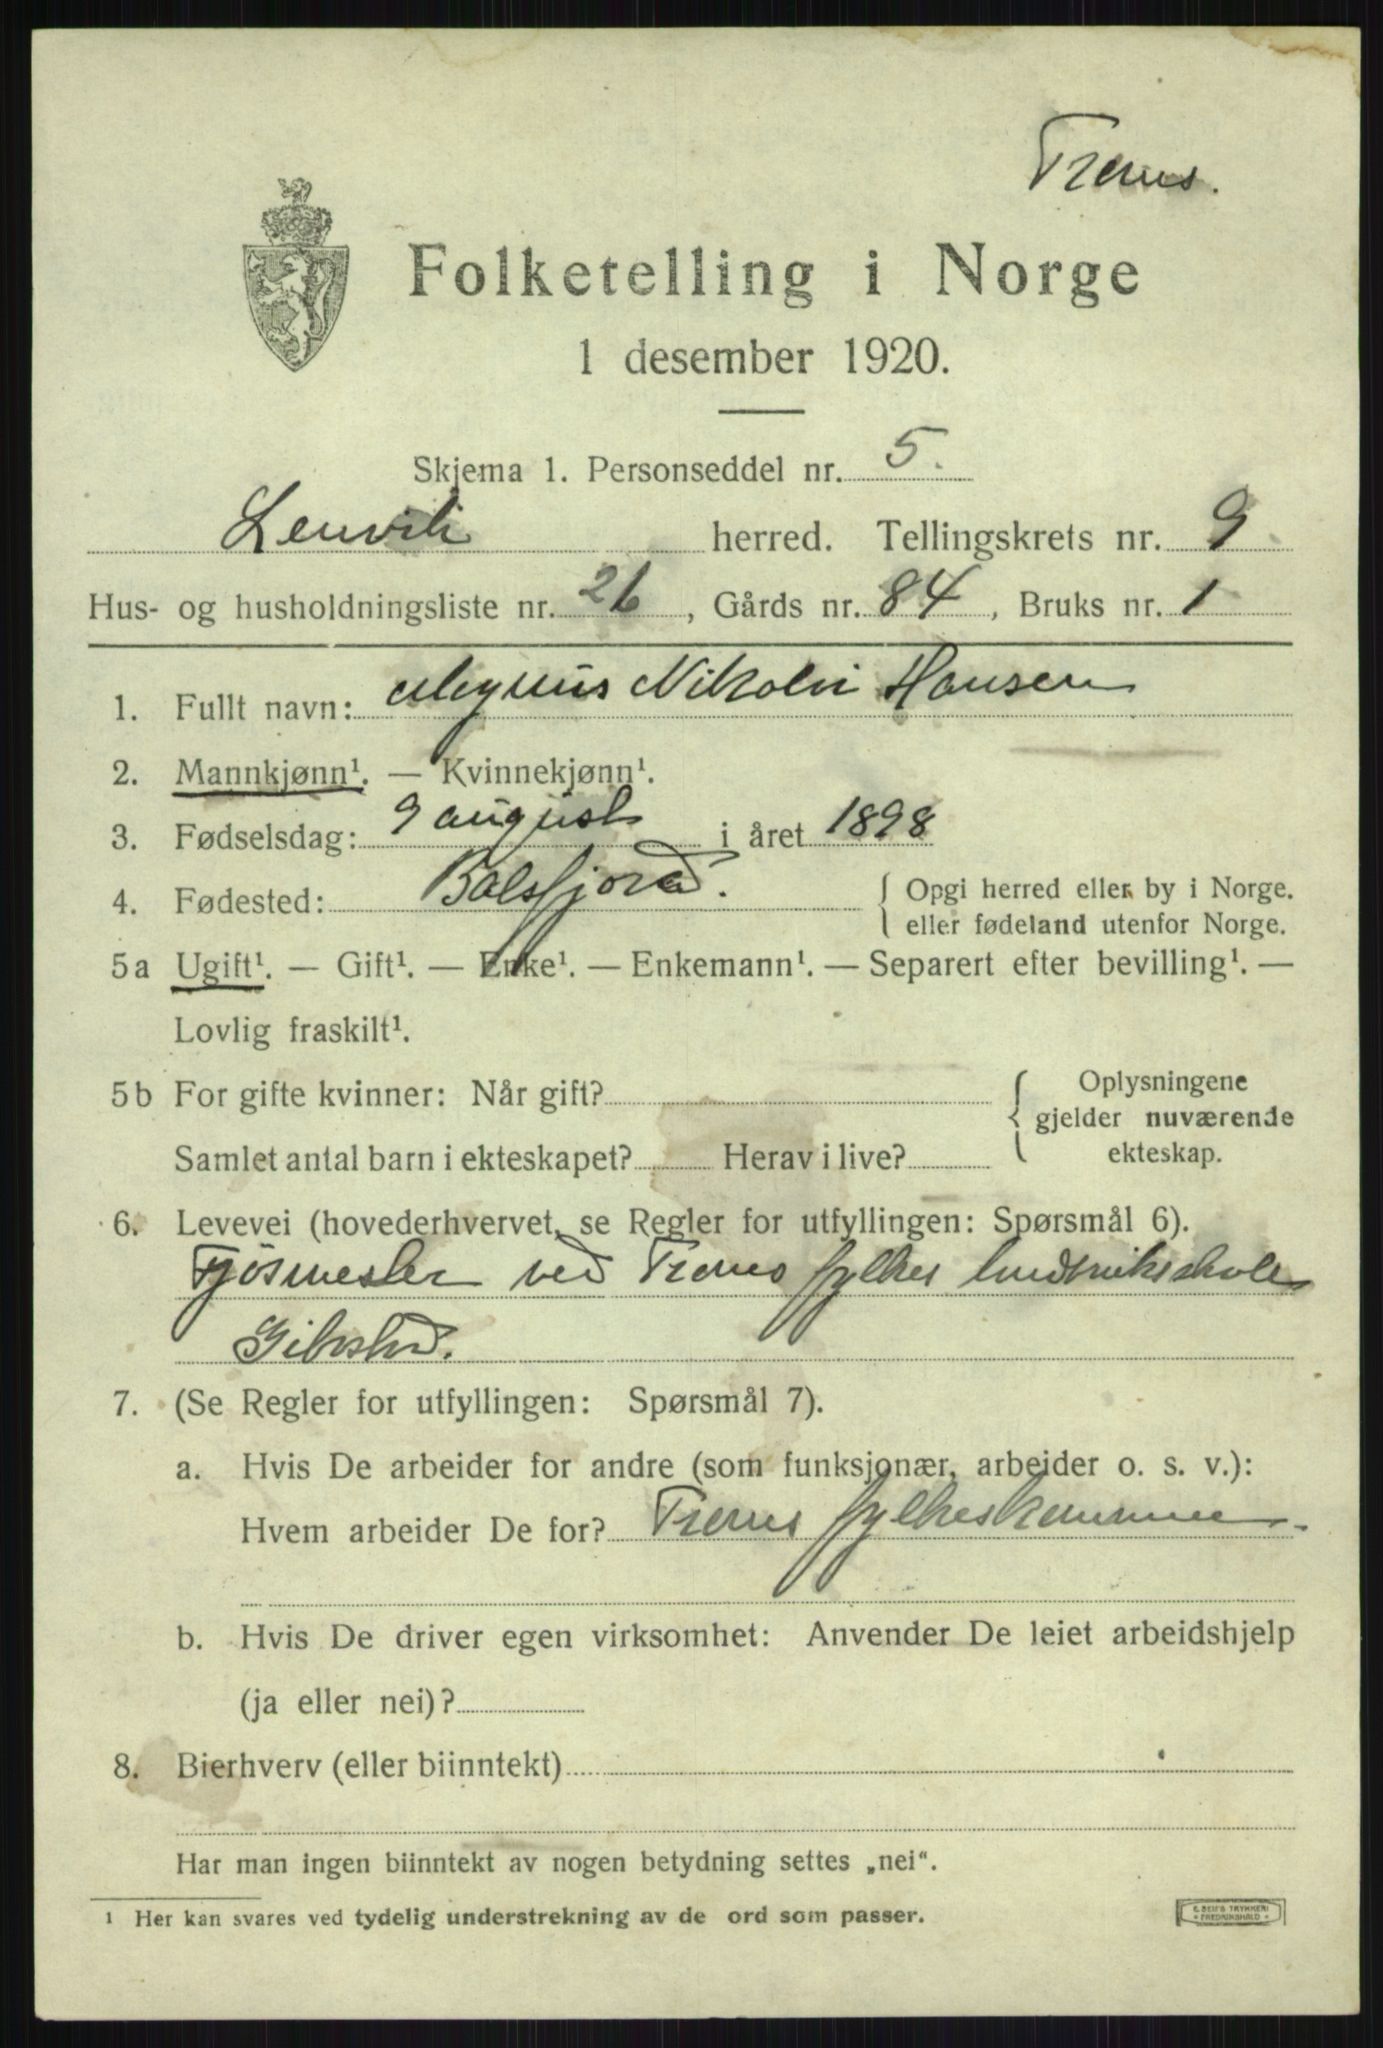 Troms.
Folketelling i Norge
1 desember 1920.
Skjema 1. Personseddel nr. 5.
Lenvik herred. Tellingskrets nr. 9
Hus- og husholdningsliste nr. 26, Gårds nr. 84, Bruks nr. 1
1. Fullt navn: Magnus Nikolai Hansen
2. Mannkjønn¹. — Kvinnekjønn¹.
3. Fødselsdag: 9 august i året 1898
4. Fødested: Balsfjord. { Opgi herred eller by i Norge.
eller fødeland utenfor Norge.
5a Ugift¹. — Gift¹. — Enke¹. — Enkemann¹. — Separert efter bevilling¹. —
Lovlig fraskilt¹.
5b For gifte kvinner: Når gift? { Oplysningene
gjelder nuværende
Samlet antal barn i ekteskapet? Herav i live? ekteskap.
6. Levevei (hovederhvervet, se Regler for utfyllingen: Spørsmål 6).
Fjøsmester ved Troms fylkes landbruksskole
Gibostad.
7. (Se Regler for utfyllingen: Spørsmål 7).
a. Hvis De arbeider for andre (som funksjonær, arbeider o. s. v.):
Hvem arbeider De for? Troms fylkeskommune.
b. Hvis De driver egen virksomhet: Anvender De leiet arbeidshjelp
(ja eller nei)?
8. Bierhverv (eller biinntekt)
Har man ingen biinntekt av nogen betydning settes „nei“.
¹ Her kan svares ved tydelig understrekning av de ord som passer.
E. SEM'S TRYKKERI
FREDRIKSHALD